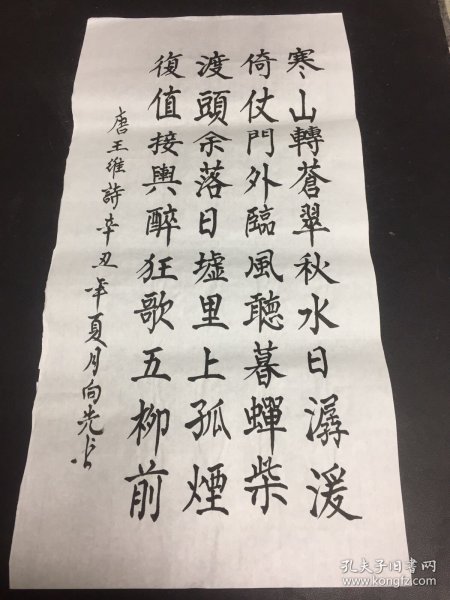 寒山轉蒼翠秋水日潺湲
倚仗門外臨風聽暮蟬柴
渡頭余落日墟里上孤煙
復值接輿醉狂歌五柳前
唐王維詩辛丑年夏月向先书
孔夫子旧书网
www.kongfz.com